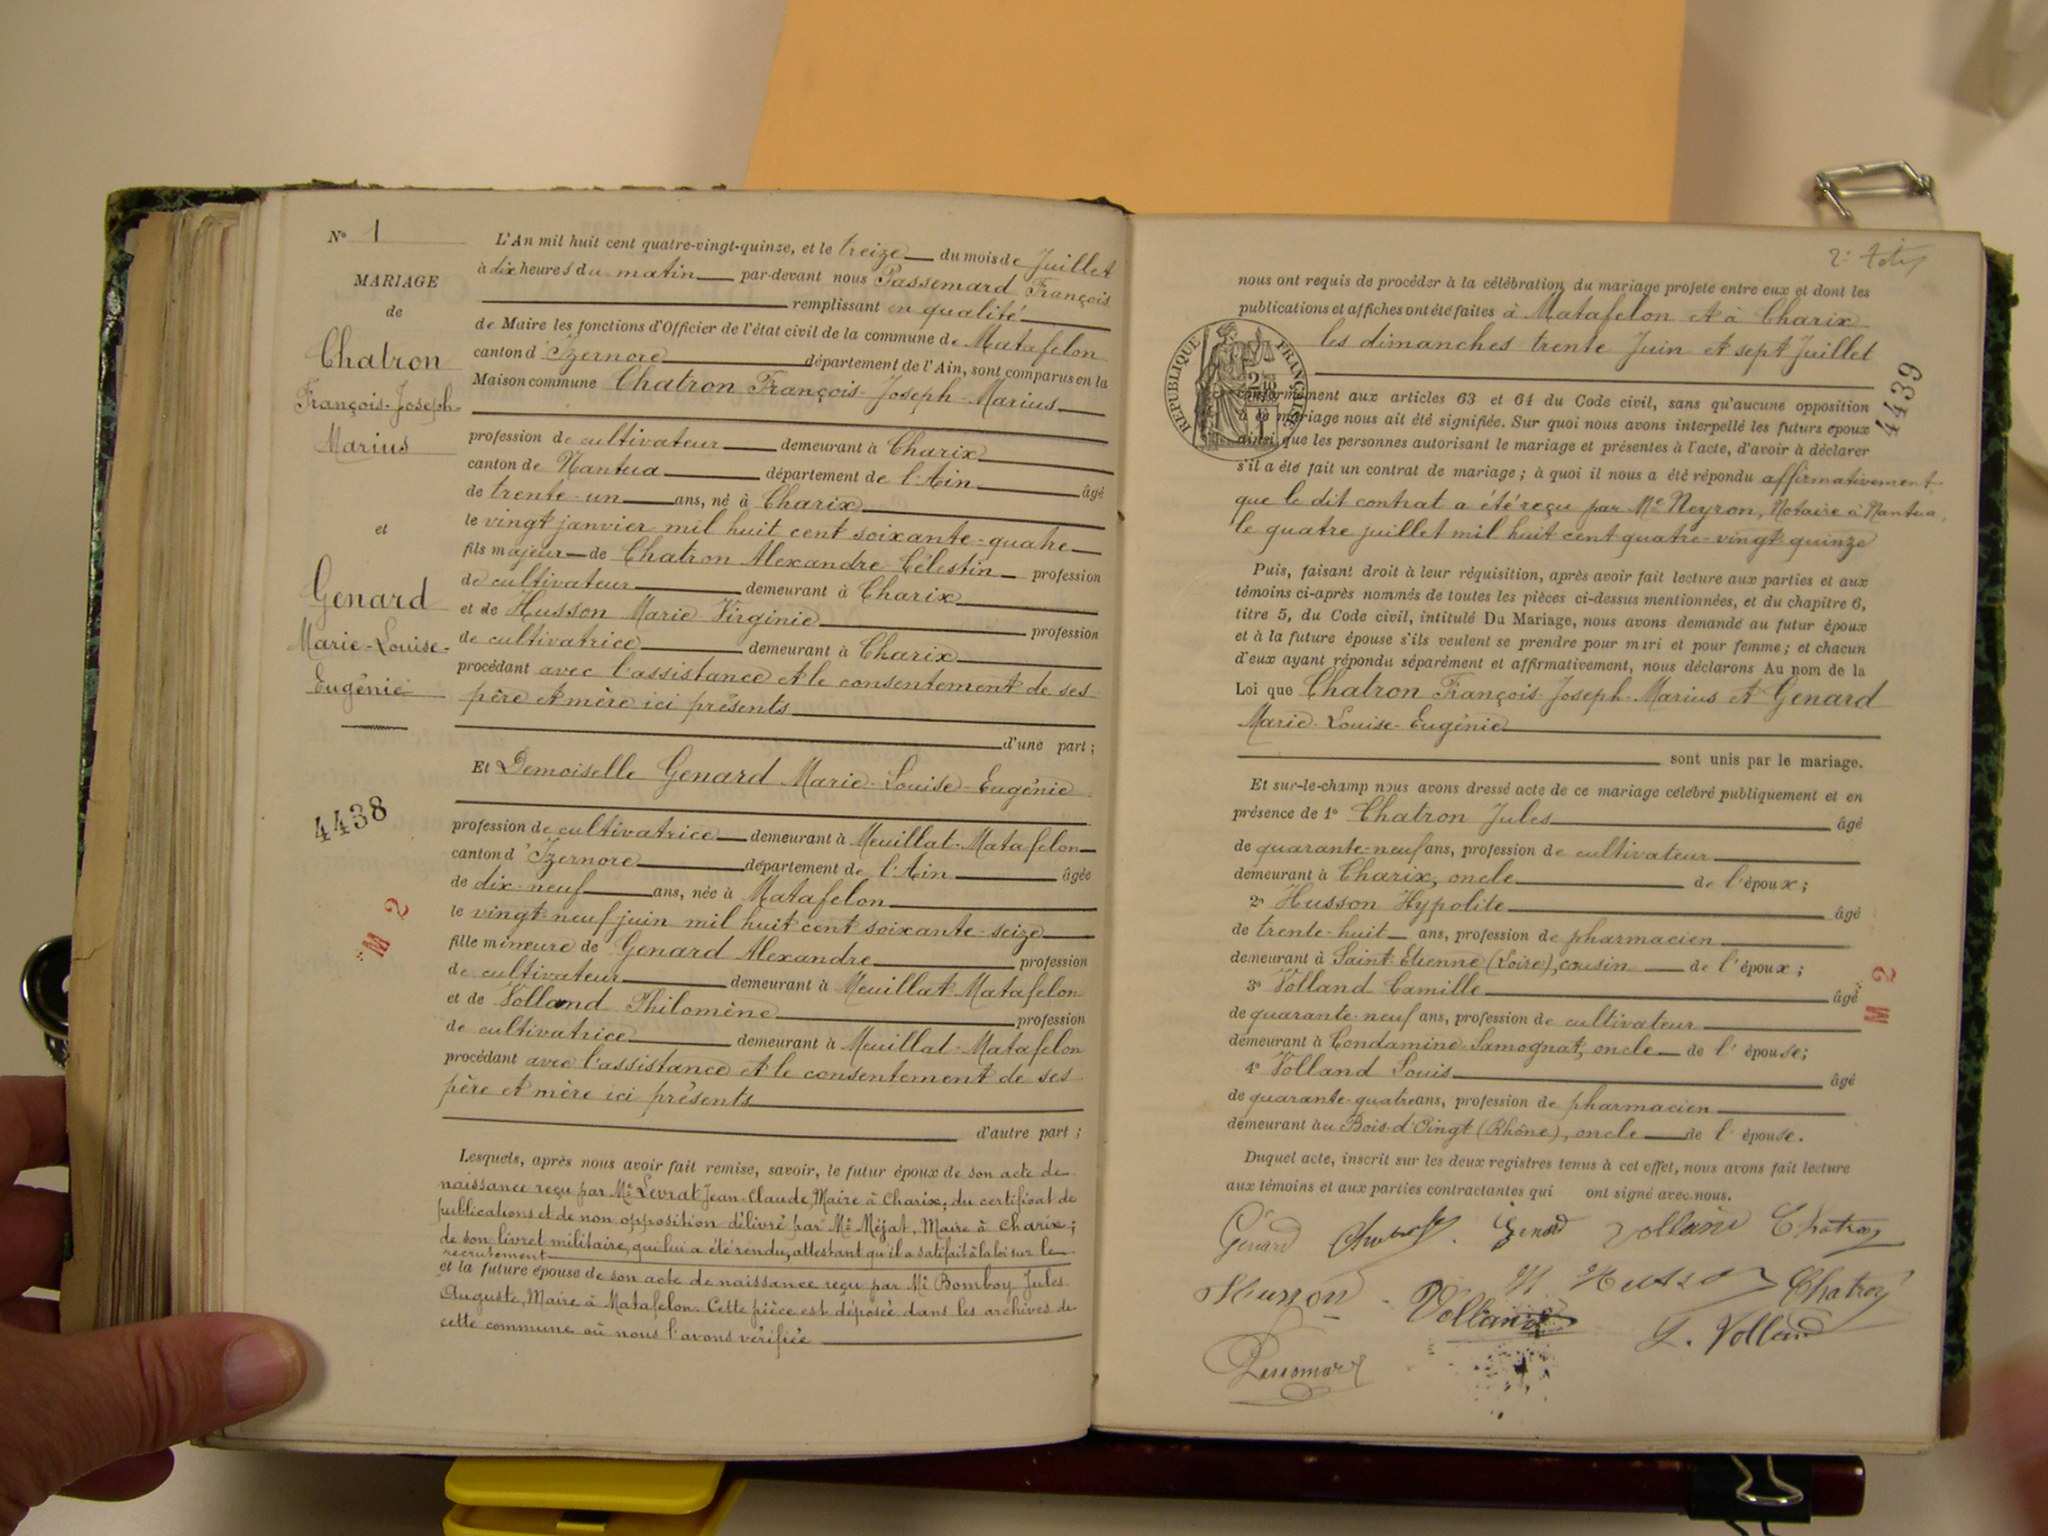 N° 1
MARIAGE
de
Chatron
François-Joseph-
Marius
et
Genard
Marie-Louise-
Eugénie
4438
M 2
L'An mil huit cent quatre-vingt-quinze, et le treize du mois de Juillet
à dix heures du matin par-devant nous Passemard François
remplissant en qualité
de Maire les fonctions d'Officier de l'état civil de la commune de Matafelon
canton d'Izernore département de l'Ain, sont comparus en la
Maison commune Chatron François-Joseph-Marius
profession de cultivateur demeurant à Charix
canton de Nantua département de l'Ain âgé
de trente-un ans, né à Charix
le vingt janvier mil huit cent soixante-quatre
fils majeur de Chatron Alexandre-Célestin profession
de cultivateur demeurant à Charix
et de Husson Marie Virginie profession
de cultivatrice demeurant à Charix
procédant avec l'assistance et le consentement de ses
père et mère ici présents
d'une part ;
Et Demoiselle Genard Marie-Louise-Eugénie
profession de cultivatrice demeurant à Meuillat-Matafelon
canton d'Izernore département de l'Ain âgée
de dix-neuf ans, née à Matafelon
le vingt-neuf juin mil huit cent soixante-seize
fille mineure de Genard Alexandre profession
de cultivateur demeurant à Meuillat Matafelon
et de Volland Philomène profession
de cultivatrice demeurant à Meuillat-Matafelon
procédant avec l'assistance et le consentement de ses
père et mère ici présents
d'autre part ;
Lesquels, après nous avoir fait remise, savoir, le futur époux de son acte de
naissance reçu par Mr Levrat Jean-Claude, Maire à Charix; du certificat de
publications et de non opposition délivré par Mr Méjat, Maire à Charix;
de son livret militaire, qui lui a été rendu, attestant qu'il a satifait à la loi sur le
recrutement
et la future épouse de son acte de naissance reçu par Mr Bomboy Jules
Auguste, Maire à Matafelon. Cette pièce est déposée dans les archives de
cette commune où nous l'avons vérifiée
nous ont requis de procéder à la célébration du mariage projeté entre eux et dont les
publications et affiches ont été faites à Matafelon et à Charix
les dimanches trente Juin et sept Juillet
RÉPUBLIQUE FRANÇAISE
4439
conformément aux articles 63 et 64 du Code civil, sans qu'aucune opposition
à ce mariage nous ait été signifiée. Sur quoi nous avons interpellé les futurs époux
ainsi que les personnes autorisant le mariage et présentes à l'acte, d'avoir à déclarer
s'il a été fait un contrat de mariage ; à quoi il nous a été répondu affirmativement
que le dit contrat a été reçu par Me Neyron, Notaire à Nantua,
le quatre juillet mil huit cent quatre-vingt quinze
Puis, faisant droit à leur réquisition, après avoir fait lecture aux parties et aux
témoins ci-après nommés de toutes les pièces ci-dessus mentionnées, et du chapitre 6,
titre 5, du Code civil, intitulé Du Mariage, nous avons demandé au futur époux
et à la future épouse s'ils veulent se prendre pour mari et pour femme ; et chacun
d'eux ayant répondu séparément et affirmativement, nous déclarons Au nom de la
Loi que Chatron François-Joseph-Marius et Genard
Marie-Louise-Eugénie
sont unis par le mariage.
Et sur-le-champ nous avons dressé acte de ce mariage célébré publiquement et en
présence de 1° Chatron Jules âgé
de quarante-neuf ans, profession de cultivateur
demeurant à Charix, oncle de l'époux ;
2° Husson Hypolite âgé
de trente-huit ans, profession de pharmacien
demeurant à Saint-Etienne (Loire), cousin de l'époux ;
3° Volland Camille âgé
M 2
de quarante-neuf ans, profession de cultivateur
demeurant à Condamine-Samognat, oncle de l'épouse;
4° Volland Louis âgé
de quarante-quatre ans, profession de pharmacien
demeurant au Bois-d'Oingt (Rhône), oncle de l'épouse.
Duquel acte, inscrit sur les deux registres tenus à cet effet, nous avons fait lecture
aux témoins et aux parties contractantes qui ont signé avec nous.
Génard Genard Volland Chatron
Husson Volland H. Husson Chatron
L. Volland
Passemard